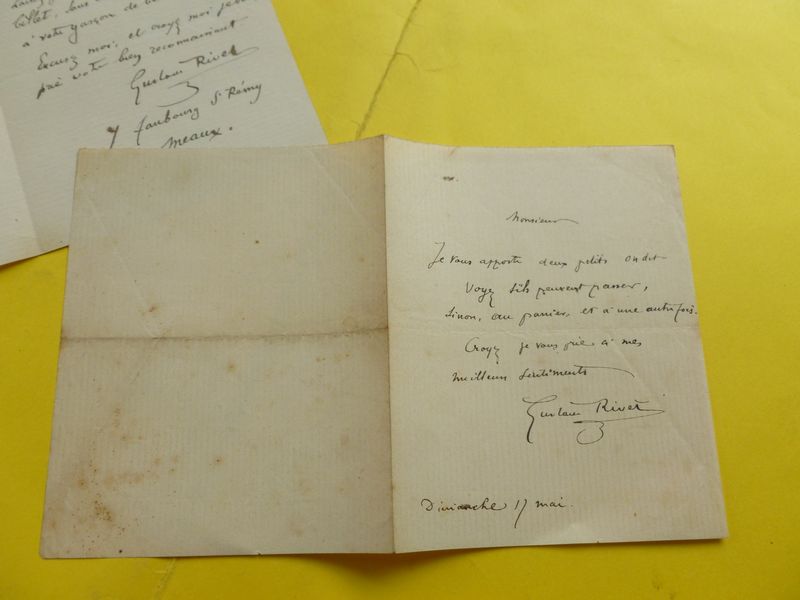 billet,
à votre garçon de
Excusez moi, et croyez moi je
prie votre bien reconnaissant
Gustave Rivet
7 faubourg St Rémy
Meaux.
Monsieur
Je vous apporte deux petits on dit
Voyez s'ils peuvent passer,
Sinon, au panier, et à une autre fois.
Croyez je vous prie à mes
meilleurs sentiments
Gustave Rivet
Dimanche 17 mai.